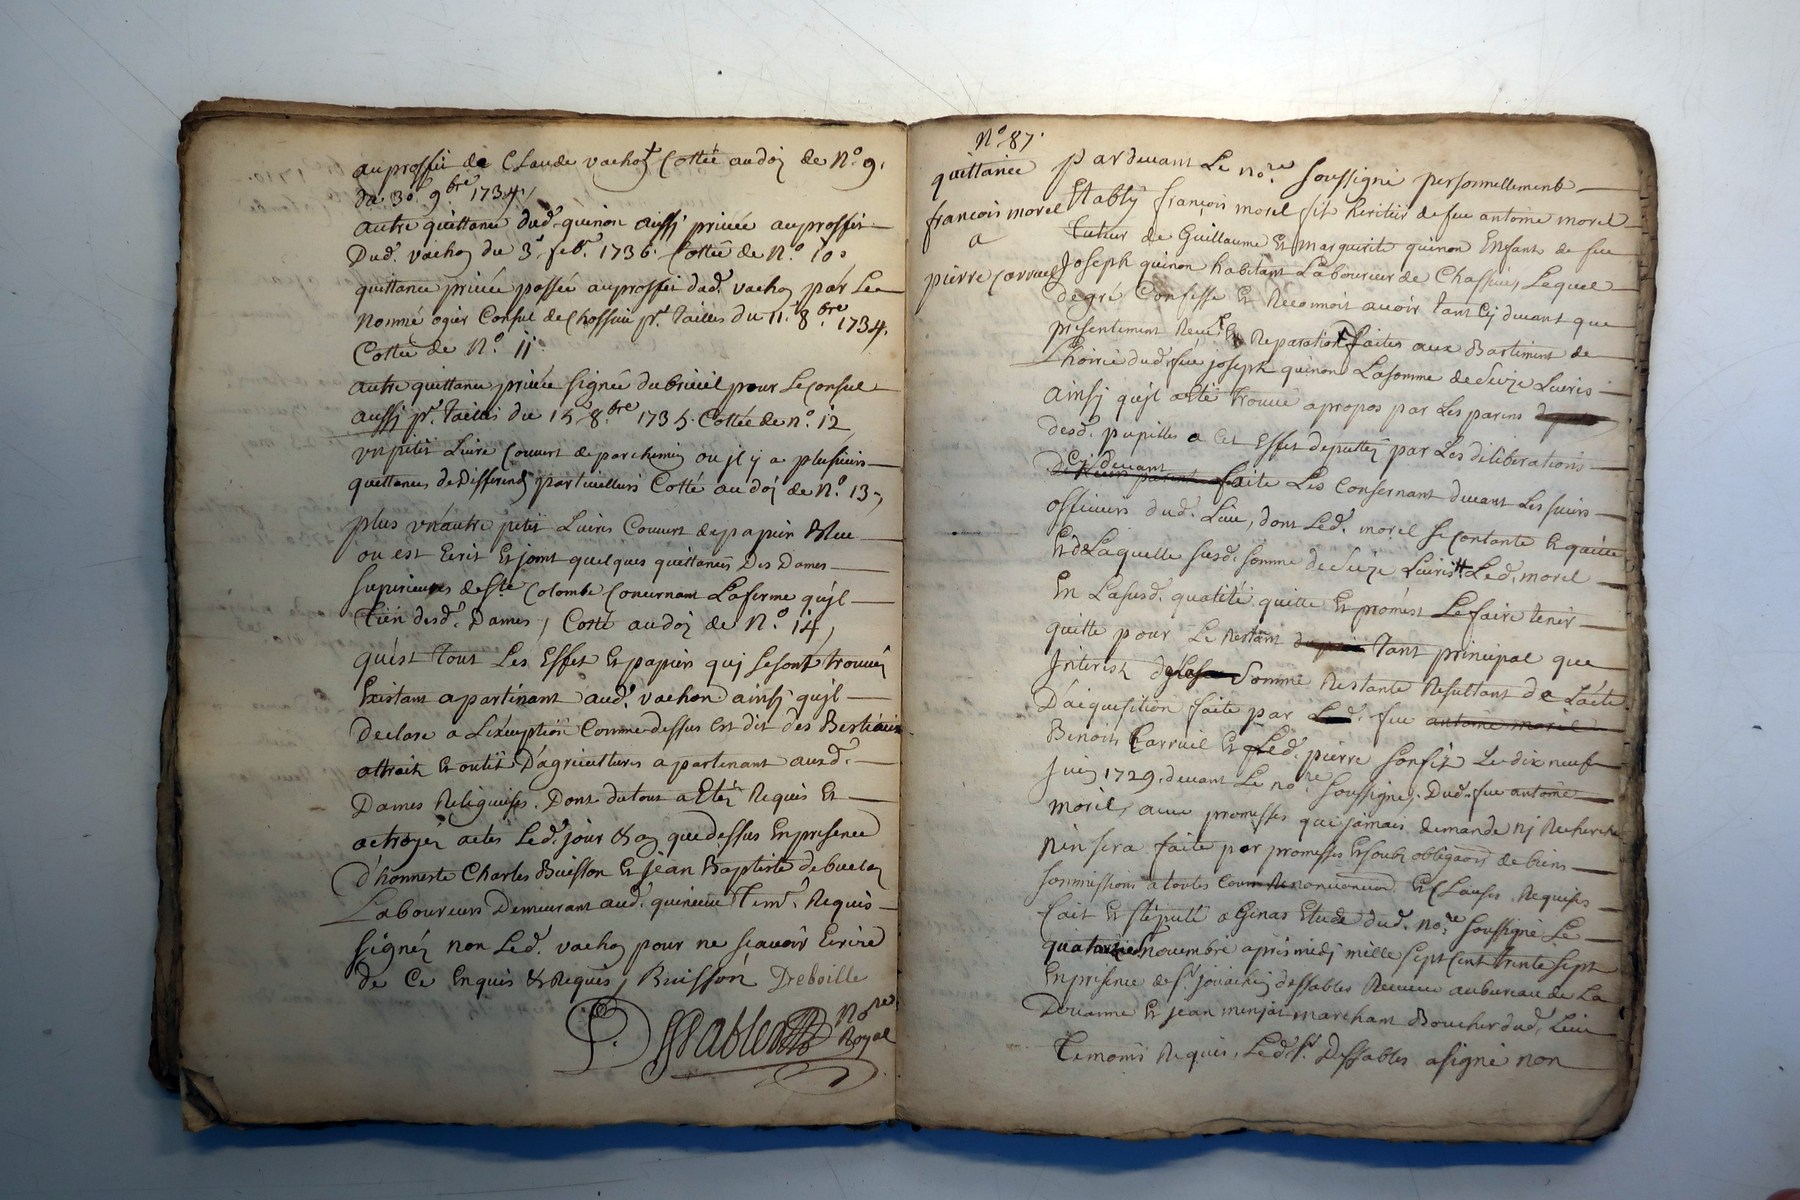 au proffit de Claude vachon Cottée au doj de N.º 9.
du 30.e 9.bre 1734,
autre quittance dud. quinon aussj privée au proffit
Dud. vachon du 3.e feb.r 1736. Cottée de N.º 10,
quittance privée passée au proffit dud. vachon par Le
Nommé ogier Consul de Chassieu p.r Tailles du 11.e 8.bre 1734.
Cottée de N.º 11
autre quittance privée signée dubrieul pour Le Consul
aussj p.r Tailles du 15 8.bre 1735. Cottée de n.º 12
un petit Livre Couvert de parchemin ou jl y a plusieurs
quittances de differends particulliers Cotté au doj de N.º 13,
plus un autre petit Livres Couvert de papier Bleue
ou est Ecrit Et joint quelques quittances Des Dames
superieures de Ste Colombe Concernant La ferme qujl
Tien desd. Dames, Cotté au doj de N.º 14,
qu'est Tout Les Effet Et papier quj se sont trouvéz
Existant apartenant aud. vachon ainsj qujl
Declare a L'exeption Comme dessus est dit des Bestiaux
attrait Et outil D'agricultures apartenant ausd.
Dames Religieuses. Dont du tout a Eté Requis Et
actroyé actes Led. jour & an que dessus En presence
d'honneste Charles Buisson Et jean Baptiste
Laboureurs Demeurant aud. Tem. Requis
signéz non Led. vachon pour ne scavoir Ecrire
de Ce Enquis & Requis, Buisson Deboille
Dessables No.re
Royal
N.º 87.
quittance
francois morel
a
pierre Carruel
pardevant Le no.re soussigné personnellement
Etably francois morel fil heritier de feu antoine morel
Tuteur de Guillaume Et marguerite quinon Enfans de feu
Joseph quinon habitant Laboureur de Chassieu, Lequel
de gré Confesse Et Reconnoit avoir tant Cy devant que
presentement Receu En Reparation faites aux Bastiment de
L'hoirie dud. feu joseph quinon La somme de Seize Livres
ainsj qujl a Eté trouvé apropos par Les parens
desd. pupilles a Cet Effet deputtéz par Les deliberations
Cy devant
faite Les Consernant devant Les sieurs
officiers dud. Lieu, dont Led. morel se contante Et quitte
Et de Laquelle susd. somme de Seize Livres Led. morel
En La susd. qualité quitte Et promest Le faire tenir
quitte pour Le Restant tant principal que
Interest de la somme Restante Resultant de L'acte
D'aiquisition faite par Led. feu antoine morel
Benoit Carruel Et Led. pierre son fiz Le dix neuf
juin 1729. devant Le no.re soussigné, Dud. feu antoine
morel, avec promesses que jamais demande nj Recherche
n'en sera faite par promesses Et soubz obligaons de biens
sommissions a toutes Cours Renonciations Et Clauses Requises
fait Et stipullé a Genas Etude dud. no.re soussigné Le
quatorze novembre apres midj mille sept Cent trente sept
En presence de s.r jouachin dessables Receveur au bureau de La
Douanne Et jean minjat marchant Boucher dud. Lieu
Temoins Requis, Led. s.r Dessables a signé non